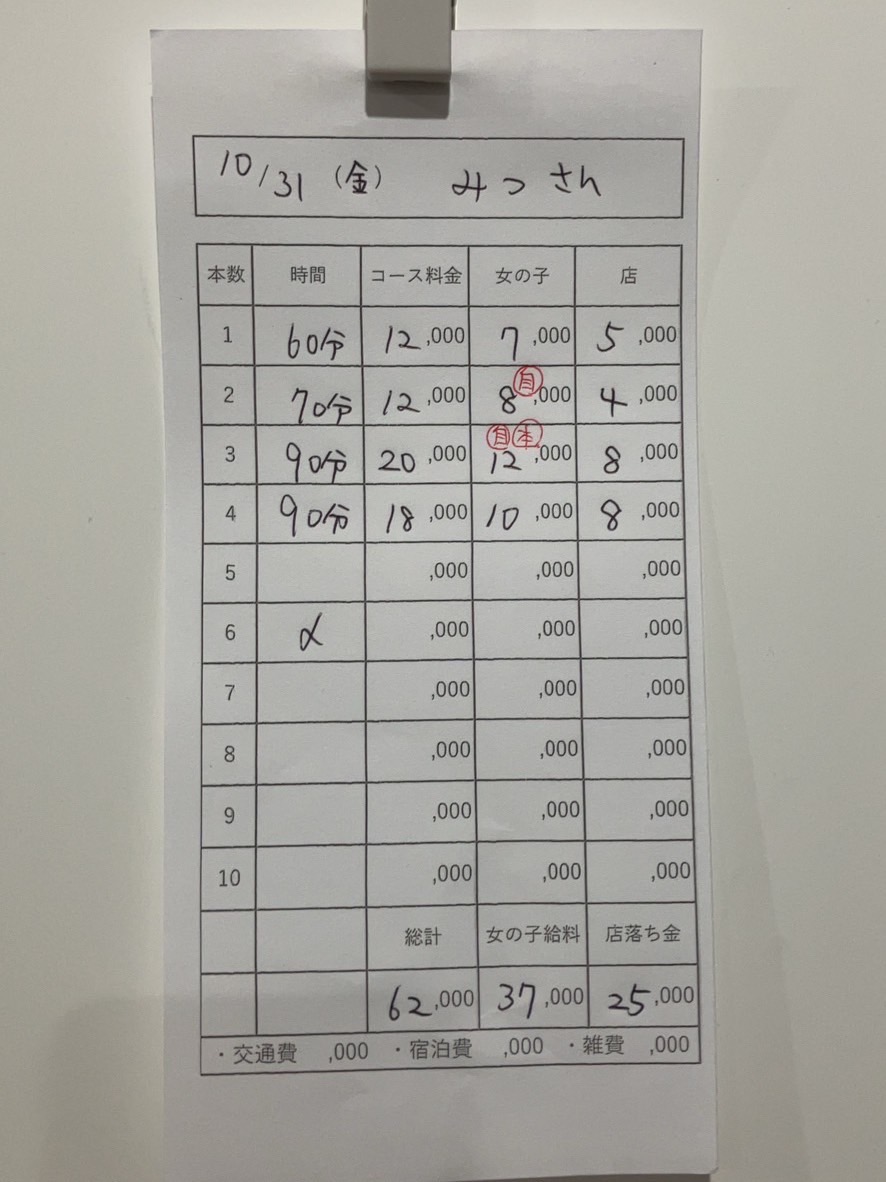 10/31 (金) みつさん
本数 時間 コース料金 女の子 店
1 60分 12,000 7,000 5,000
2 70分 12,000 8,000 自 4,000
3 90分 20,000 自 本 12,000 8,000
4 90分 18,000 10,000 8,000
5 ,000 ,000 ,000
6 α ,000 ,000 ,000
7 ,000 ,000 ,000
8 ,000 ,000 ,000
9 ,000 ,000 ,000
10 ,000 ,000 ,000
総計 女の子給料 店落ち金
62,000 37,000 25,000
・交通費 ,000 ・宿泊費 ,000 ・雑費 ,000